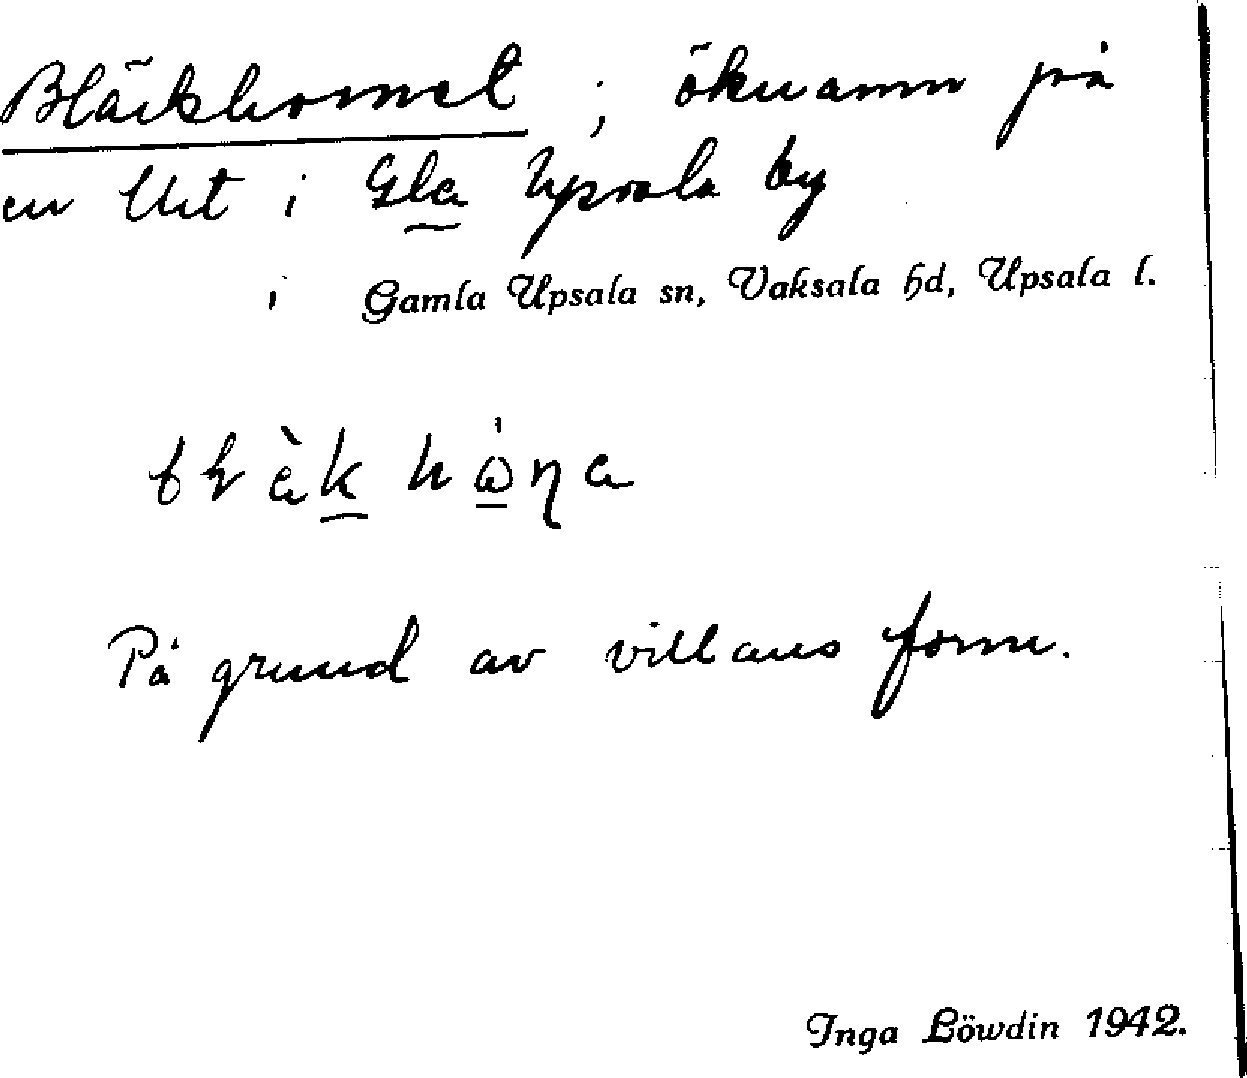 Bläckhornet ; öknamn på
en lht i Gla Upsala by
i Gamla Upsala sn, Vaksala hd, Upsala l.
På grund av villans form.
Inga Löwdin 1942.